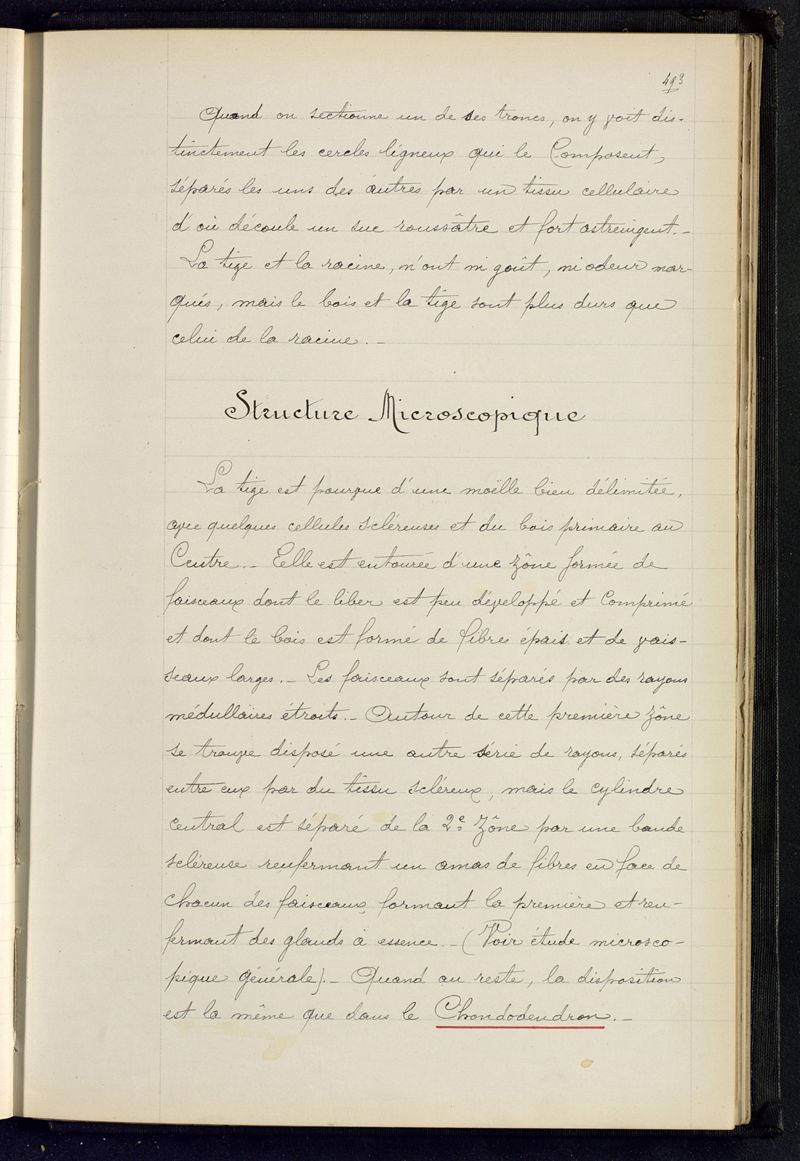 493
Quand on sectionne un de ses troncs, on y voit dis-
tinctement les cercles ligneux qui le Composent,
séparés les uns des autres par un tissu cellulaire
d'où découle un suc roussâtre et fort astreingent._
La tige et la racine, n'ont ni goût, ni odeur mar-
qués, mais le bois et la tige sont plus durs que
celui de la racine._
Structure Microscopique
La tige est pourvue d'une moëlle bien délimitée,
avec quelques cellules scléreuses et du bois primaire au
Centre._ Elle est entourée d'une zône formée de
faisceaux dont le liber est peu développé et Comprimé
et dont le bois est formé de fibres épais et de vais-
seaux larges._ Les faisceaux sont séparés par des rayons
médullaires étroits._ Autour de cette première zône
se trouve disposé une autre série de rayons, séparés
entre eux par du tissu scléreux, mais le cylindre
central est séparé de la 2e zône par une bande
scléreuse renfermant un amas de fibres en face de
chacun des faisceaux formant la première et ren-
fermant des glands à essence._ (Voir étude microsco-
pique générale)._ Quand au reste, la disposition
est la même que dans le Chondodendron._